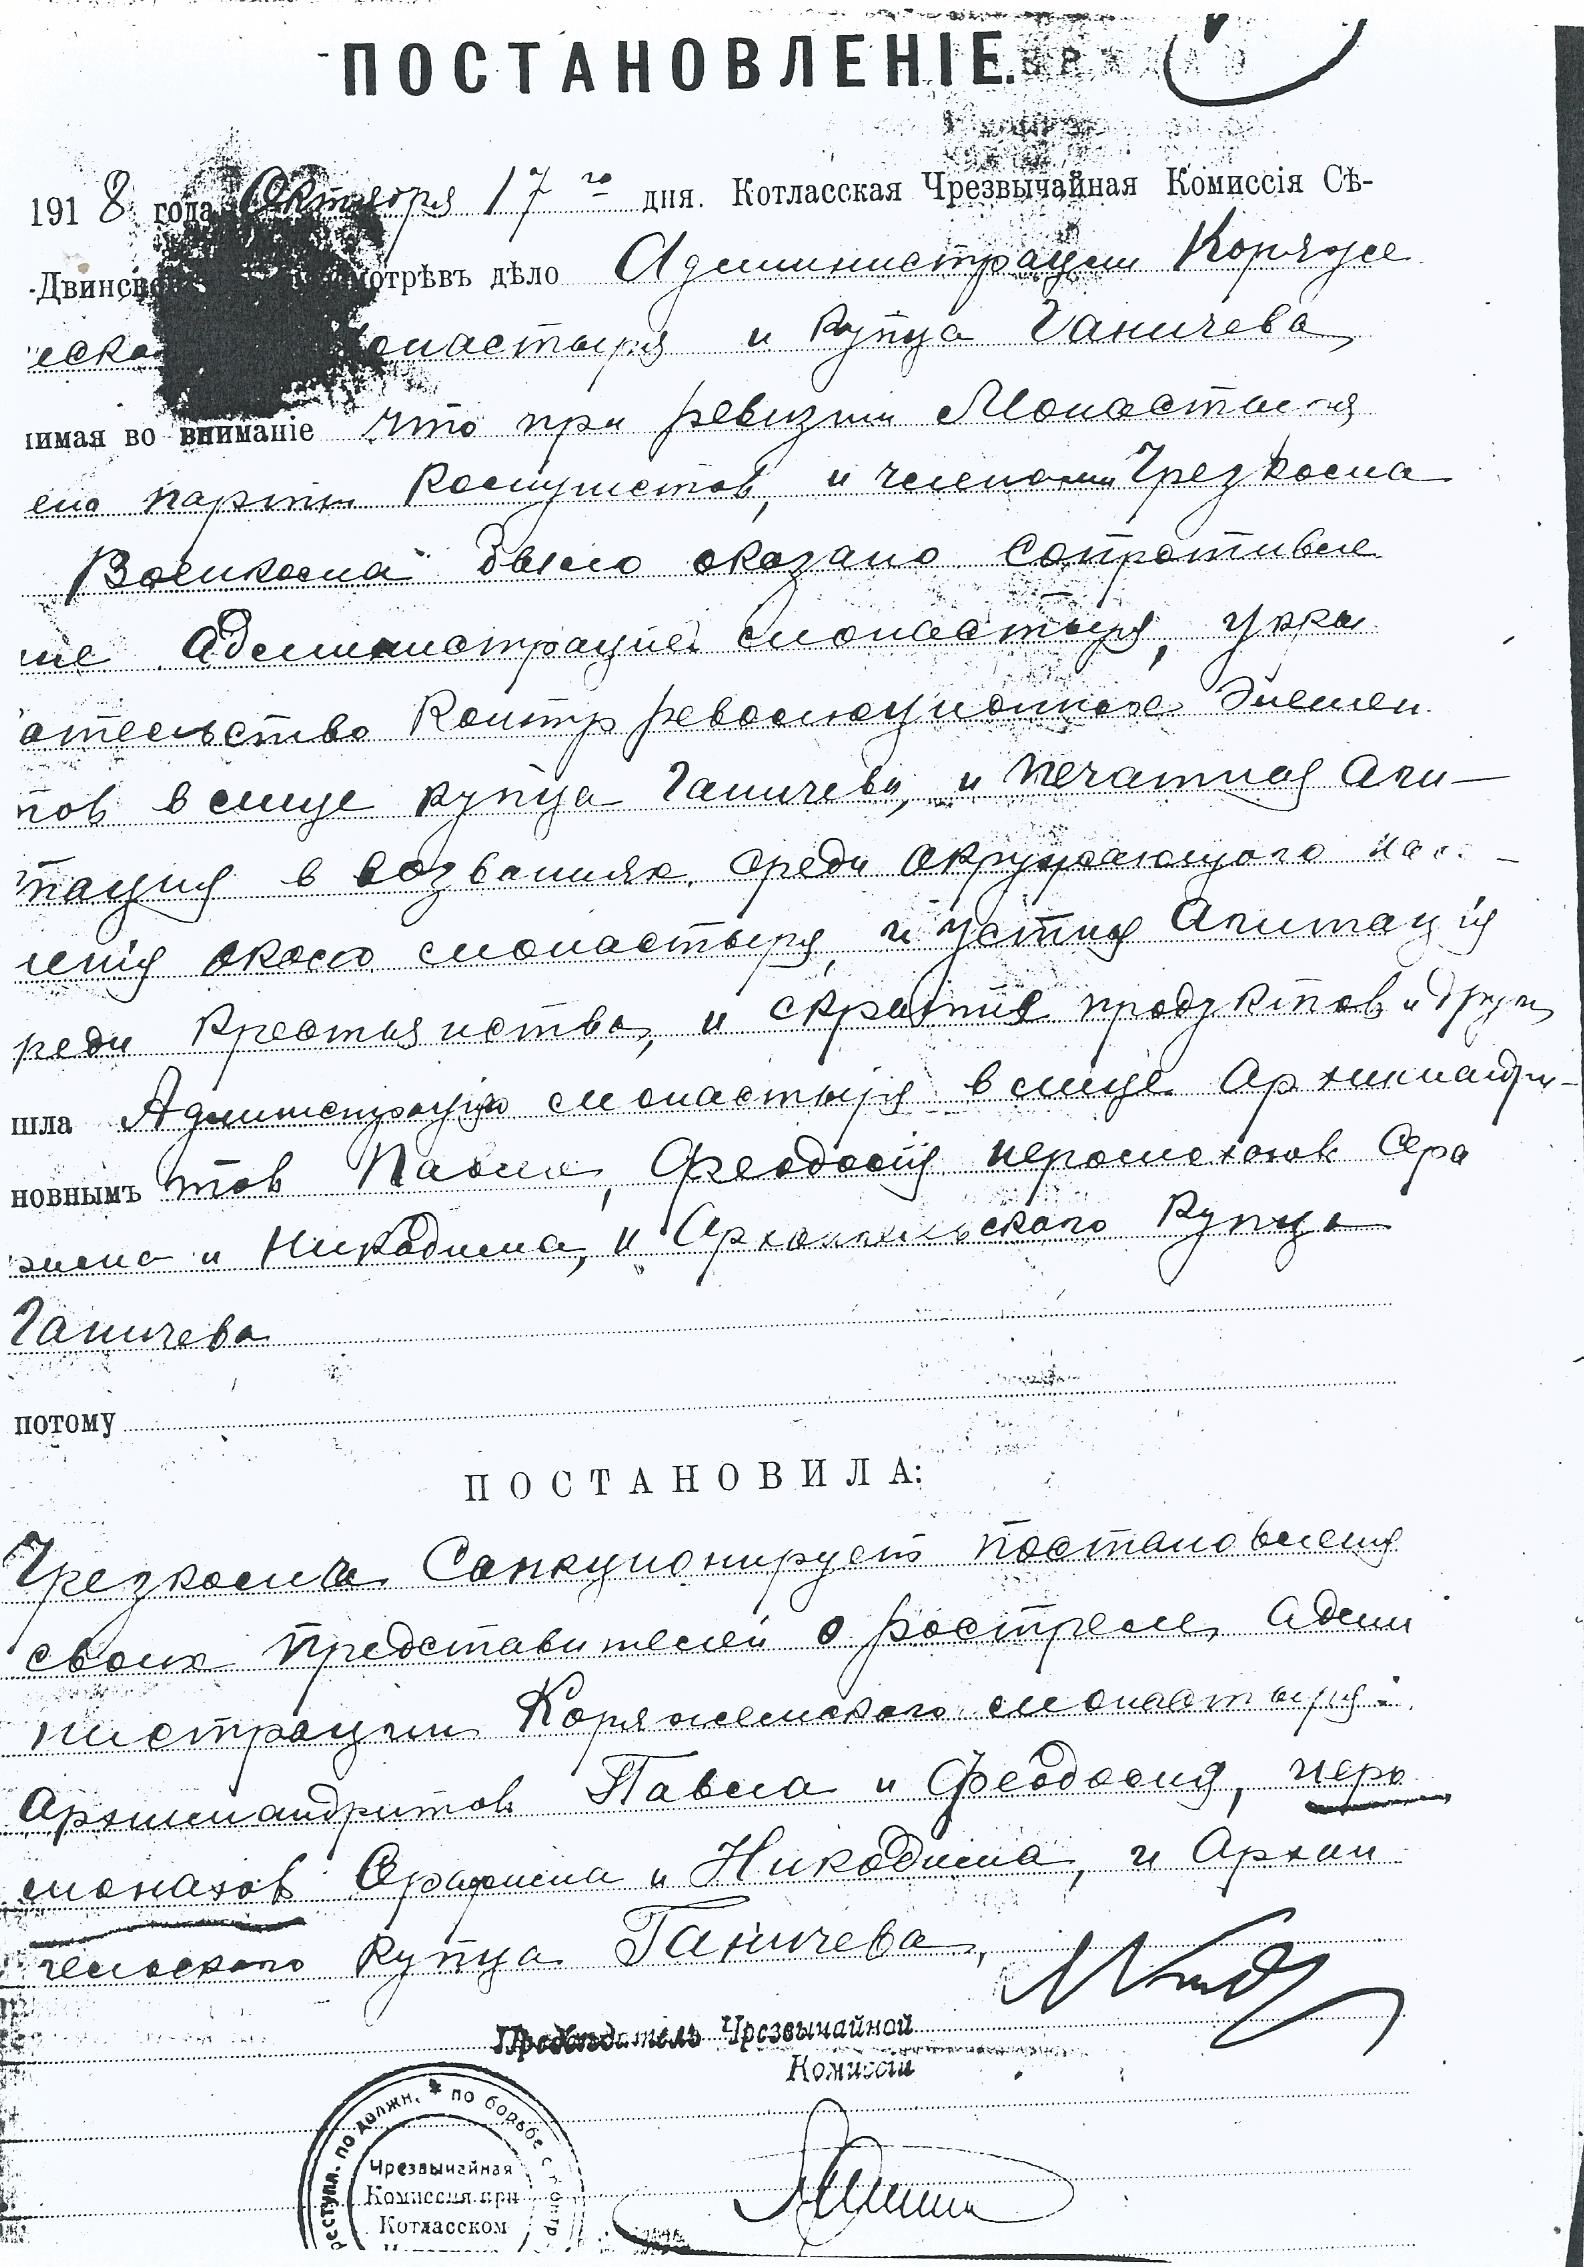 ПОСТАНОВЛЕНІЕ.
1918 года Октября 17го дня. Котласская Чрезвычайная Комиссія Сѣ-
-Двинск мотрѣвъ дѣло Администрации Коряже
еско онастыря и купца Ганичева,
нимая во вниманіе что при ревизии Монастыря
ено партии Комунистов, и членами Чрезкома
Воинкома было оказано сопротивле
ние Администрацией монастыря, укры
вательство Контр революционных Элемен
тов в лице купца Ганичева, и печатная Аги-
тация в возваниях, среди окружающого насе-
ленія около монастыря, и устная Агитація
реди Крестьянства, и скрытие продуктов и други
шла Администрацию монастыря в лице Архимандри-
новнымъ тов Павла, Феодосія иеромонахов Сера
фима и Никодима, и Архангельского Купца
Ганичева
потому
ПОСТАНОВИЛА:
Чрезкома Санкционирует постановления
своих представителей о ростреле, Адми
нистрации Коряжемского монастыря:
Архимандритов Павла и Феодосия, иеро
монахов Серафима и Никодима, иАрхан
гельского купца Ганичева,
Председатель Чрезвычайной
Комиссіи
реступл. по должн. * по борьбе с контр
Чрезвычайная
Комиссия при
Котласском